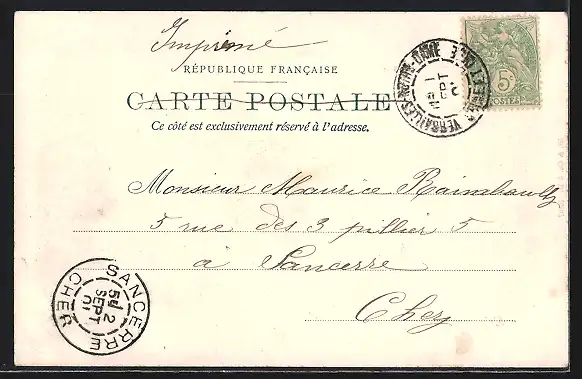 Imprimé
RÉPUBLIQUE FRANÇAISE
CARTE POSTALE
Ce côté est exclusivement réservé à l'adresse.
5c
POSTES
VERSAILLES NOTRE-DAME
SEPT
Monsieur Maurice Raimbault
5 rue des 3 pillier 5
à Sancerre
Cher
SANCERRE
5E 2
SEPT
01
CHER